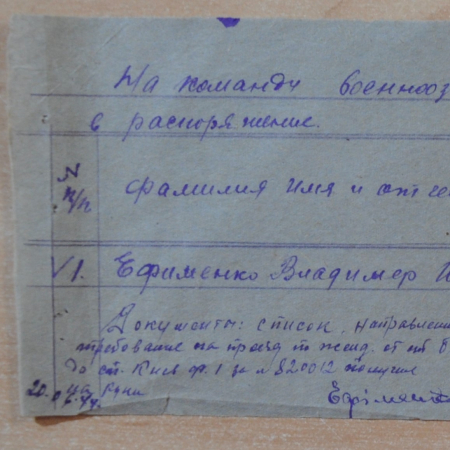 На команду военнооз
в распоряжение.
N п/п
фамилия имя и отче
1. Ефименко Владимер И
Документы: список, направлени
требование на проезд по жел.д. от
до ст. Киев ф.1 за № 820012 получил
на руки
Ефіменко